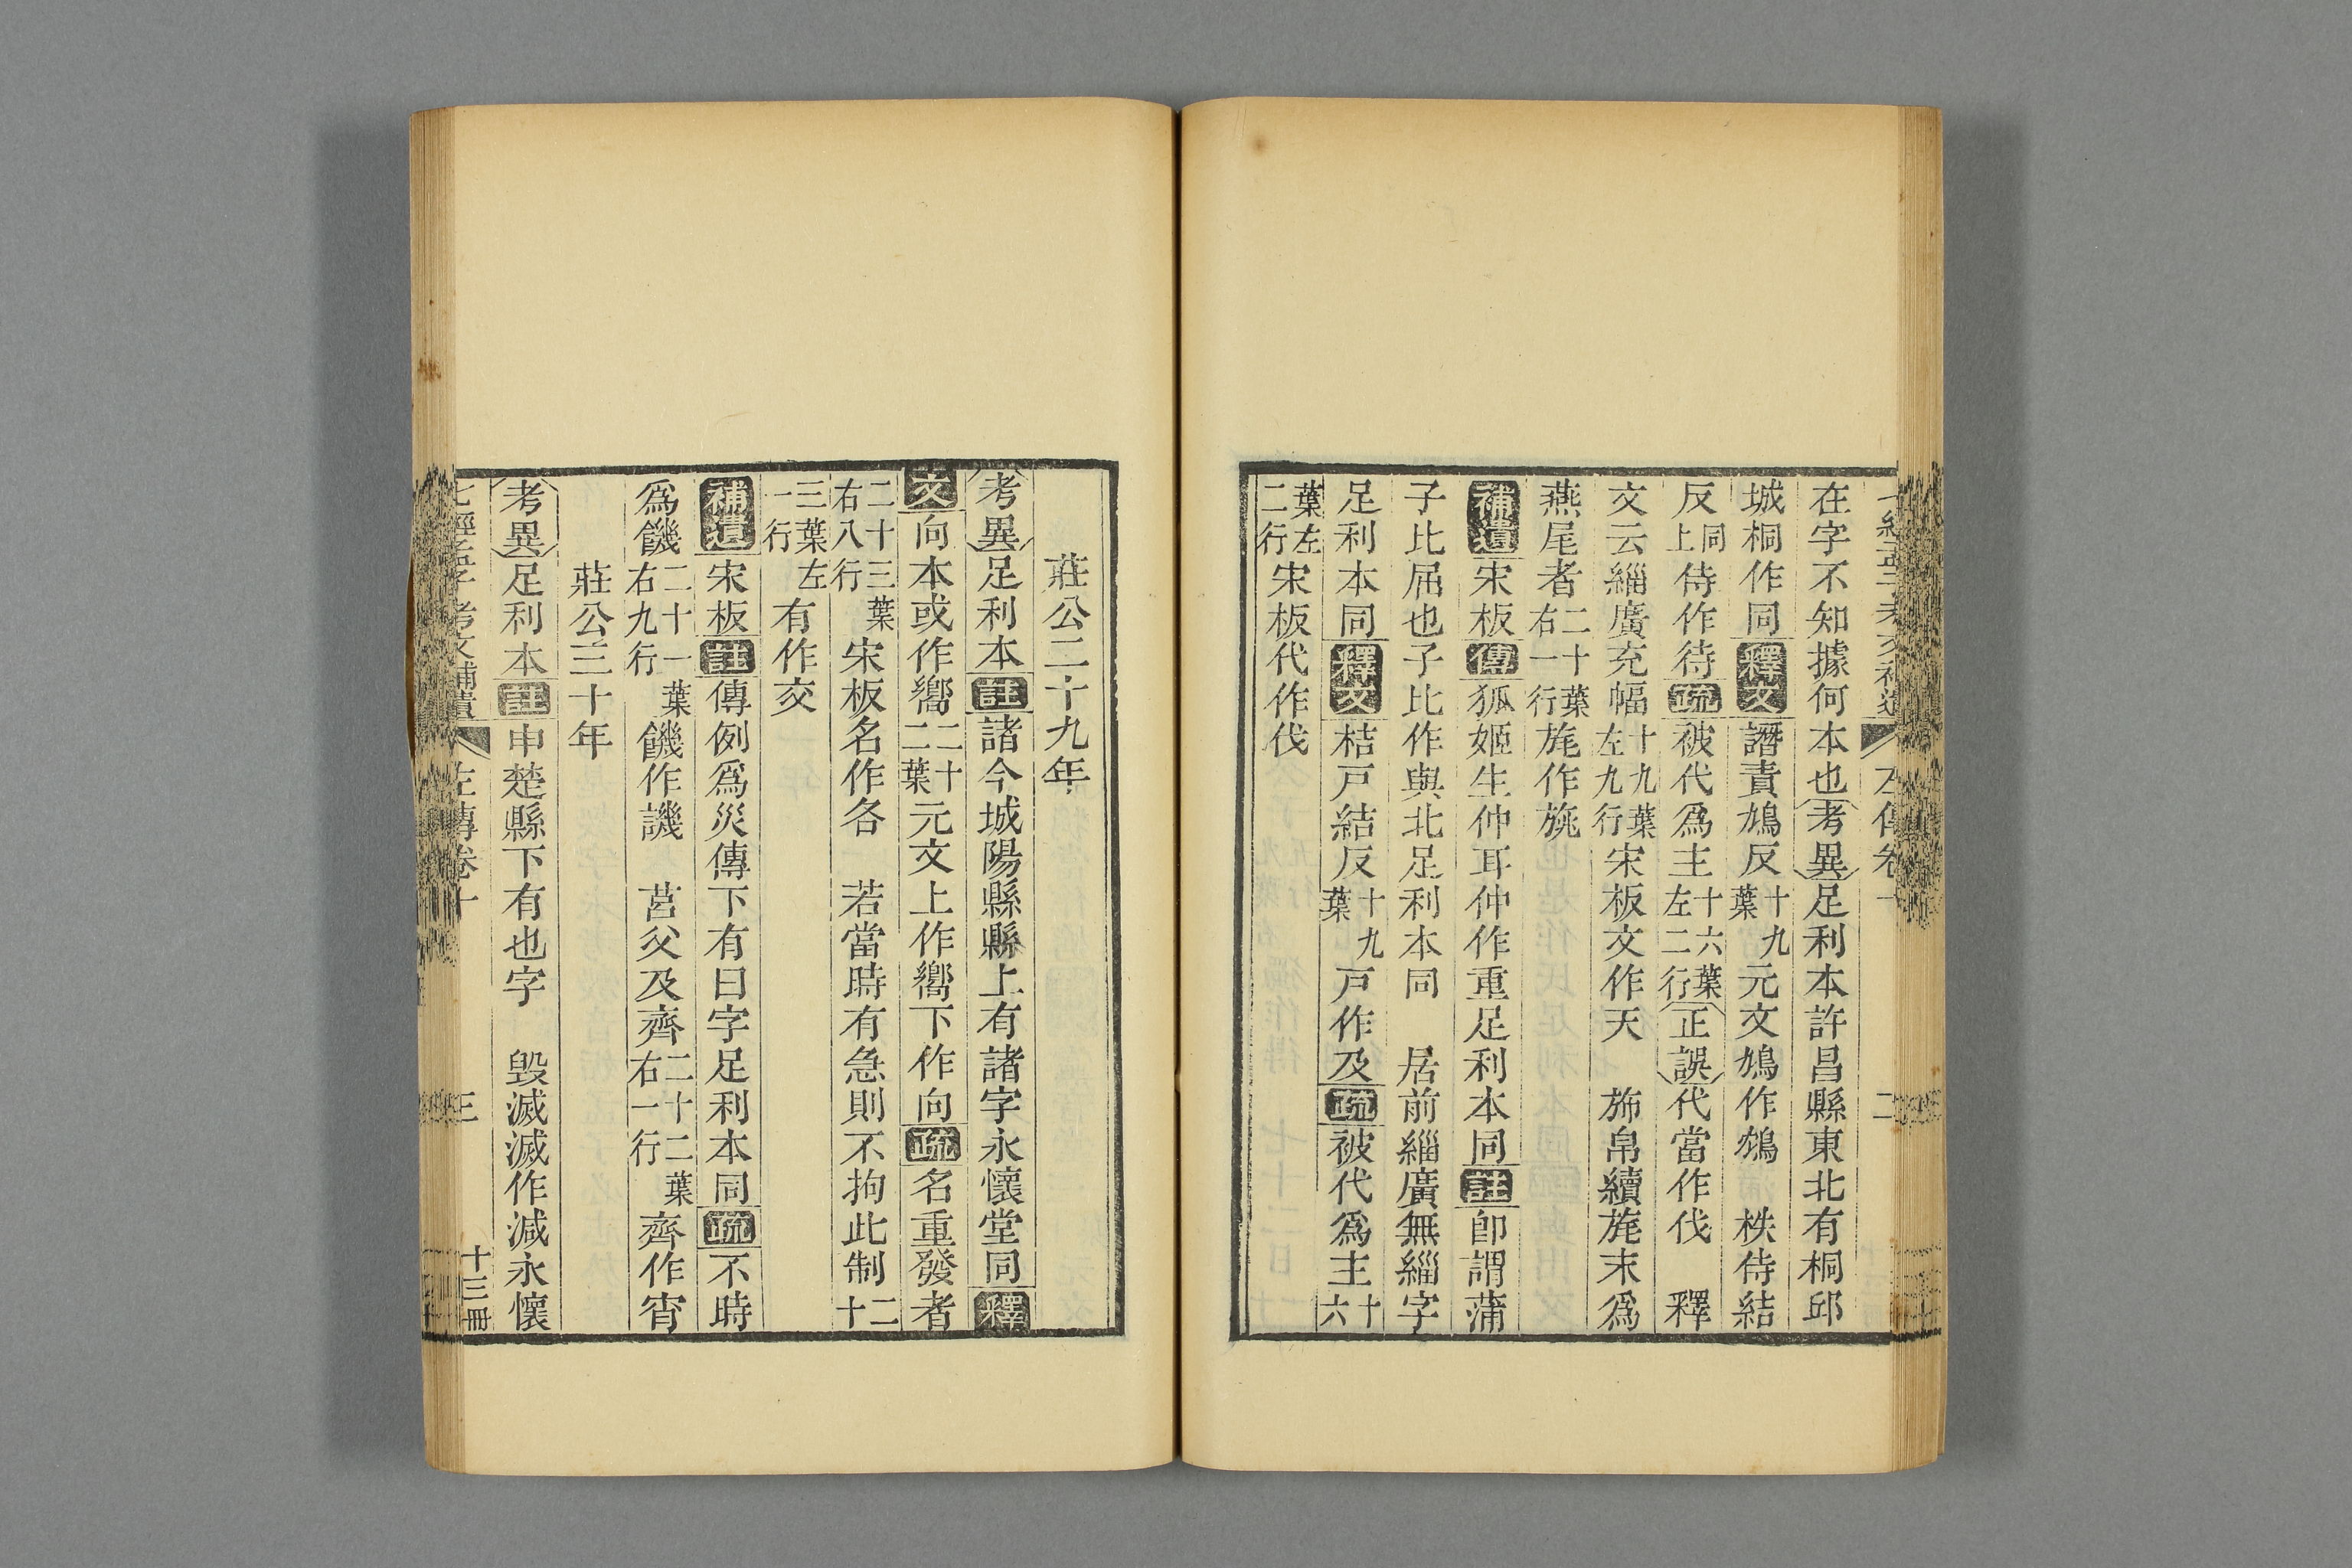 在字不知據何本也考異足利本許昌縣東北有桐邱
城桐作同釋文譖責鳩反十九葉元文鳩作鴆　柣侍結
反同上侍作待疏被代爲主十六葉左二行正誤代當作伐　釋
文云緇廣充幅十九葉左九行宋板文作天　斾帛續旄末爲
燕尾者二十葉右一行旄作旐
補遺宋板傳狐姬生仲耳仲作重足利本同註卽謂蒲
子比屈也子比作與北足利本同　居前緇廣無緇字
足利本同釋文桔戸結反十九葉戸作及疏被代爲主十六
葉左二行宋板代作伐
莊公二十九年
考異足利本註諸今城陽縣縣上有諸字永懷堂同釋
文向本或作嚮二十二葉元文上作嚮下作向疏名重發者
二十三葉右八行宋板名作各　若當時有急則不拘此制二十
三葉左一行有作交
補遺宋板註傳例爲災傳下有曰字足利本同疏不時
爲饑二十一葉右九行饑作譏　莒父及齊二十二葉右一行齊作宵
莊公三十年
考異足利本註申楚縣下有也字　毀滅滅作減永懷
七經孟子考文補遺　左傳卷十　三　十三冊